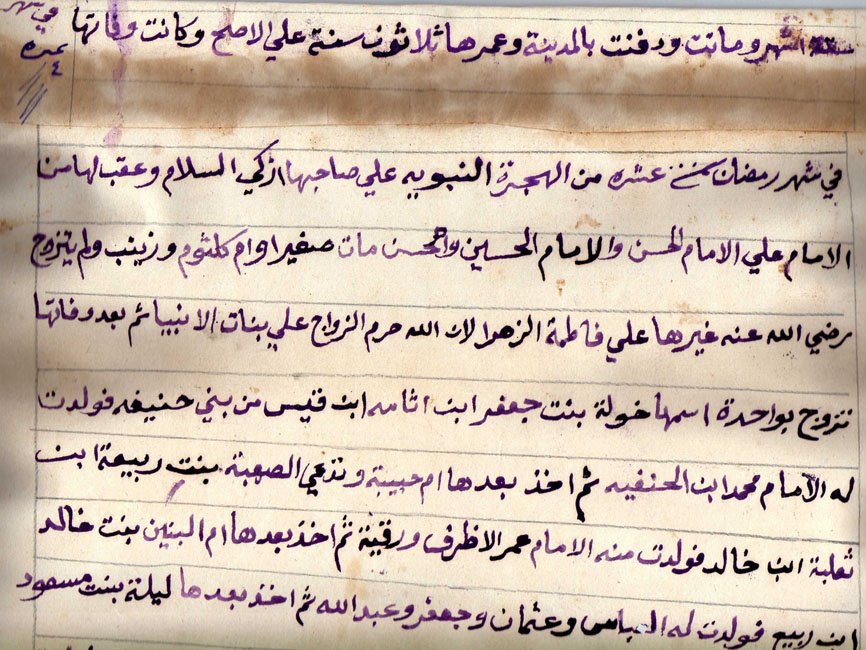 اشهر وماتت ودفنت بالمدينة وعمرها ثلاثون سنة علي الاصح وكانت وفاتها
في شهر
نمره
٤
في شهر رمضان سنة عشره من الهجرة النبويه علي صاحبها ازكي السلام وعقب لها من
الامام علي الامام الحسن والامام الحسين والمحسن مات صغيرا وام كلثوم وزينب ولم يتزوج
رضي الله عنه غيرها علي فاطمة الزهرا لان الله حرم الزواج علي بنات الانبيا ثم بعد وفاتها
تزوج بواحدة اسمها خولة بنت جعفر ابن اثامه ابن قيس من بني حنيفه فولدت
له الامام محمد ابن الحنفيه ثم اخذ بعدها ام حبيبة وتدعي الصهبة بنت ربيعة ابن
ثعلبة ابن خالد فولدت منه الامام عمر الاظرف ورقية ثم اخذ بعدها ام البنين بنت خالد
ابن ربيع فولدت له العباس وعثمان وجعفر وعبد الله ثم اخذ بعدها ليلة بنت مسعود